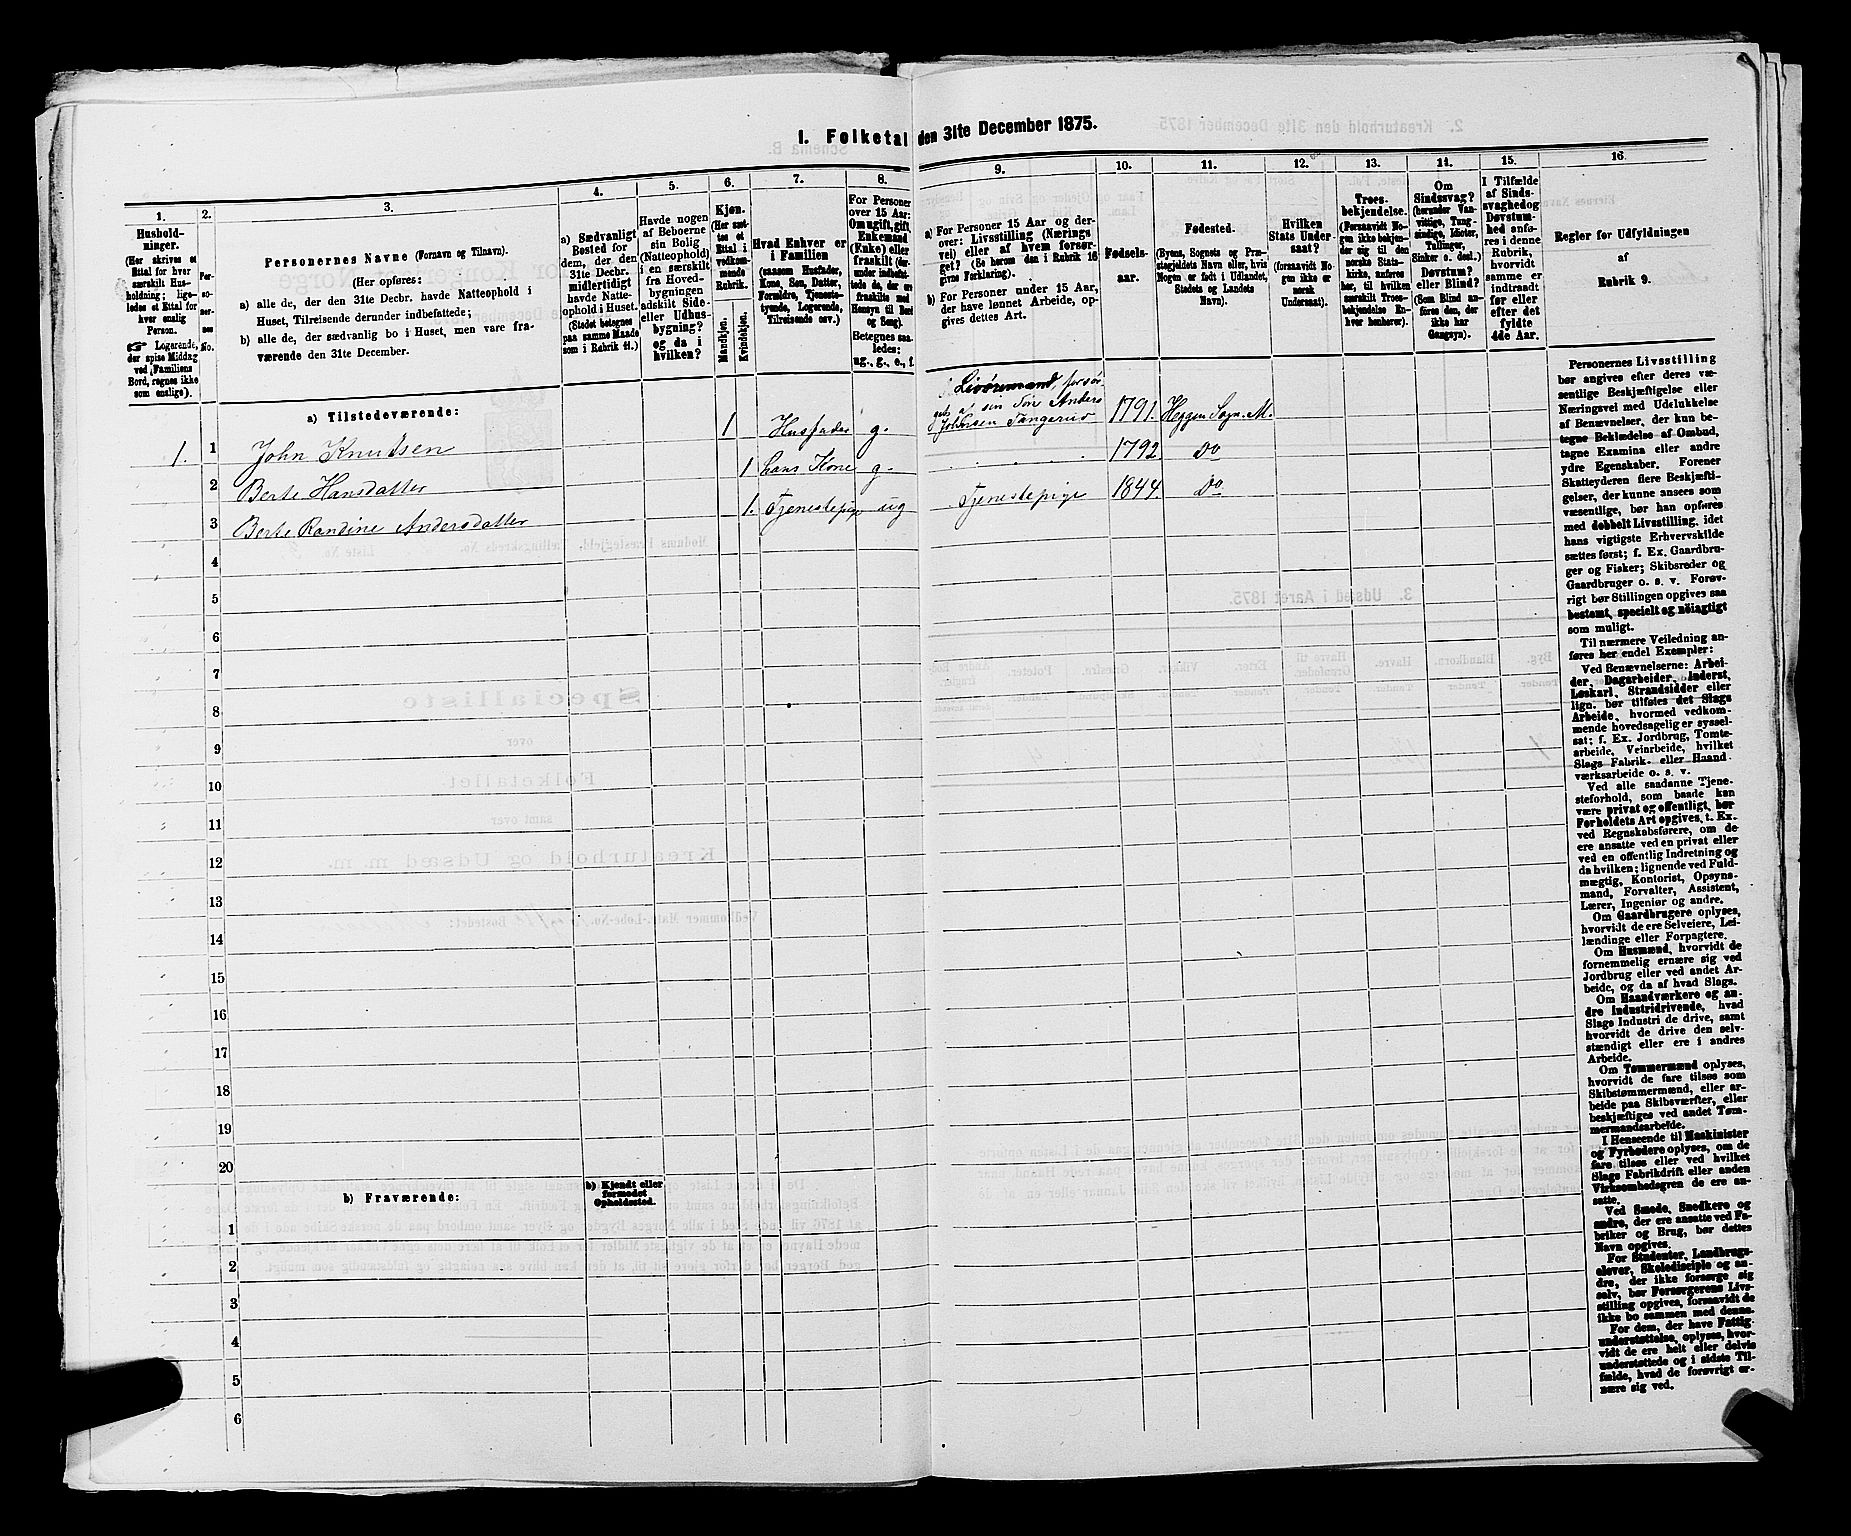 I. Folketal den 31te December 1875.
1.
Hushold-
ninger.
(Her skrives et
Ettal for hver
særskilt Hus-
holdning; lige-
ledes et Ettal for
hver enslig
Person.
☞ Logerende,
der spise Middag
ved Familiens
Bord, regnes ikke
som enslige).
2.
Per-
so-
ner-
nes
No.
3.
Personernes Navne (Fornavn og Tilnavn).
(Her opføres:
a) alle de, der den 31te Decbr. havde Natteophold i
Huset, Tilreisende derunder indbefattede;
b) alle de, der sædvanlig bo i Huset, men vare fra-
værende den 31te December.
4.
a) Sædvanligt
Bosted for
dem, der den
31te Decbr.
midlertidigt
havde Natte-
ophold i Huset.
(Stedet betegnes
paa samme Maade
som i Rubrik 11.)
5.
Havde nogen
af Beboerne
sin Bolig
(Natteophold)
i en særskilt
fra Hoved-
bygningen
adskilt Side-
eller Udhus-
bygning?
og da i
hvilken?
6.
Kjøn.
(Her sæt-
tes et
Ettal i
vedkom-
mende
Rubrik.
Mandkjøn.
Kvindekjøn.
7.
Hvad Enhver er
i Familien
(saasom Husfader,
Kone, Søn, Datter,
Forældre, Tjeneste-
tyende, Logerende,
Tilreisende osv.)
8.
For Personer
over 15 Aar:
Om ugift, gift,
Enkemand
(Enke) eller
fraskilt (der-
under indbefat-
tede de, der ere
fraskilte med
Hensyn til Bord
og Seng).
Betegnes saa-
ledes:
ug., g., e., f.
9.
a) For Personer 15 Aar og der-
over: Livsstilling (Nærings-
vei) eller af hvem forsør-
get? (Se herom den i Rubrik 16
givne Forklaring).
b) For Personer under 15 Aar,
der have lønnet Arbeide, op-
gives dettes Art.
10.
Fødsels-
aar.
11.
Fødested.
(Byens, Sognets og Præ-
stegjeldets Navn eller, hvis
Nogen er født i Udlandet,
Stedets og Landets
Navn).
12.
Hvilken
Stats Under-
saat?
(forsaavidt No-
gen ikke er
norsk
Undersaat).
13.
Troes-
bekjendelse.
(Forsaavidt No-
gen ikke bekjen-
der sig til den
norske Stats-
kirke, anføres
her, til hvilken
særskilt Troes-
bekjendelse En-
hver henhører).
14.
Om
Sindssvag?
(herunder Van-
vittige, Tung-
sindige, Idioter,
Tullinger,
Sinker o. desl.)
Døvstum?
eller Blind?
(Som Blind an-
føres den, der
ikke har
Gangsyn).
15.
I Tilfælde
af Sinds-
svaghed og
Døvstum-
hed anfø-
res i denne
Rubrik,
hvorvidt
samme er
indtraadt
før eller
efter det
fyldte
4de Aar.
16.
Regler for Udfyldningen
af
Rubrik 9.
a) Tilstedeværende:
1. 1 John Knudsen 1 Husfader g. Livøremand, forsør-
ges af sin Søn Anders
Johnsen Tangerud 1791. Heggen Sogn. M.
2 Berte Hansdatter 1 hans Kone g. 1792 Do
3 Berte Randine Andersdatter 1. Tjenestepige ug Tjenestepige 1844. Do
4
5
6
7
8
9
10
11
12
13
14
15
16
17
18
19
20
b) Fraværende:
b) Kjendt eller
formodet
Opholdssted.
1
2
3
4
5
6
Personernes Livsstilling
bør angives efter deres væ-
sentlige Beskjæftigelse eller
Næringsvei med Udelukkelse
af Benævnelser, der kun be-
tegne Beklædelse af Ombud,
tagne Examina eller andre
ydre Egenskaber. Forener
Skatteyderen flere Beskjæfti-
gelser, der kunne ansees som
væsentlige, bør han opføres
med dobbelt Livsstilling, idet
hans vigtigste Erhvervskilde
sættes først; f. Ex. Gaardbru-
ger og Fisker; Skibsreder og
Gaardbruger o. s. v. Forøv-
rigt bør Stillingen opgives saa
bestemt, specielt og nøiagtigt
som muligt.
Til nærmere Veiledning an-
føres her endel Exempler:
Ved Benævnelserne: Arbei-
der, Dagarbeider, Inderst,
Løskarl, Strandsidder eller
lign. bør tilføies det Slags
Arbeide, hvormed vedkom-
mende hovedsagelig er syssel-
sat; f. Ex. Jordbrug, Tomte-
arbeide, Veiarbeide, hvilket
Slags Fabrik- eller Haand-
værksarbeide o. s. v.
Ved alle saadanne Tjene-
steforhold, som baade kan
være privat og offentligt, bør
Forholdets Art opgives, t. Ex.
ved Regnskabsførere, om de
ere ansatte ved en privat eller
ved en offentlig Indretning og
da hvilken; lignende ved Fuld-
mægtig, Kontorist, Opsyns-
mand, Forvalter, Assistent,
Lærer, Ingeniør og andre.
Om Gaardbrugere oplyses,
hvorvidt de ere Selveiere, Lei-
lændinge eller Forpagtere.
Om Husmænd, hvorvidt de
fornemmelig ernære sig ved
Jordbrug eller ved andet Ar-
beide, og da af hvad Slags.
Om Haandværkere og an-
dre Industridrivende, hvad
Slags Industri de drive, samt
hvorvidt de drive den selv-
stændigt eller ere i andres
Arbeide.
Om Tømmermænd oplyses,
hvorvidt de fare tilsøs som
Skibstømmermænd, eller ar-
beide paa Skibsværfter, eller
beskjæftiges ved andet Tøm-
mermandsarbeide.
I Henseende til Maskinister
og Fyrbødere oplyses, om de
fare tilsøs eller ved hvilket
Slags Fabrikdrift eller anden
Virksomhedsgren de ere an-
satte.
Ved Smede, Snedkere og
andre, der ere ansatte ved Fa-
briker og Brug, bør dettes
Navn opgives.
For Studenter, Landbrugs-
elever, Skoledisciple og an-
dre, der ikke forsørge sig
selv, bør Forsørgerens Livs-
stilling opgives, forsaavidt de
ikke bo sammen med denne.
For dem, der have Fattig-
understøttelse, oplyses, hvor-
vidt de ere helt eller delvis
understøttede og i sidste Til-
fælde, hvad de forøvrigt er-
nære sig ved.